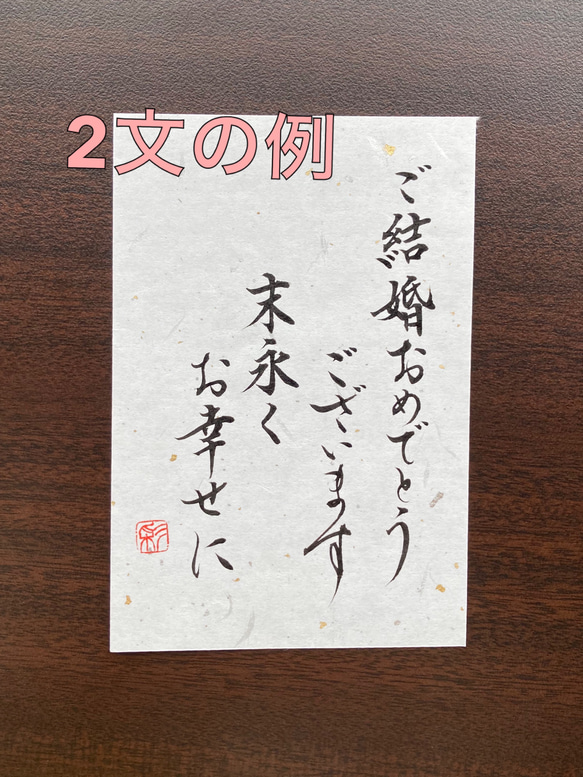 2文の例
ご結婚おめでとう
ございます
末永く
お幸せに
彩